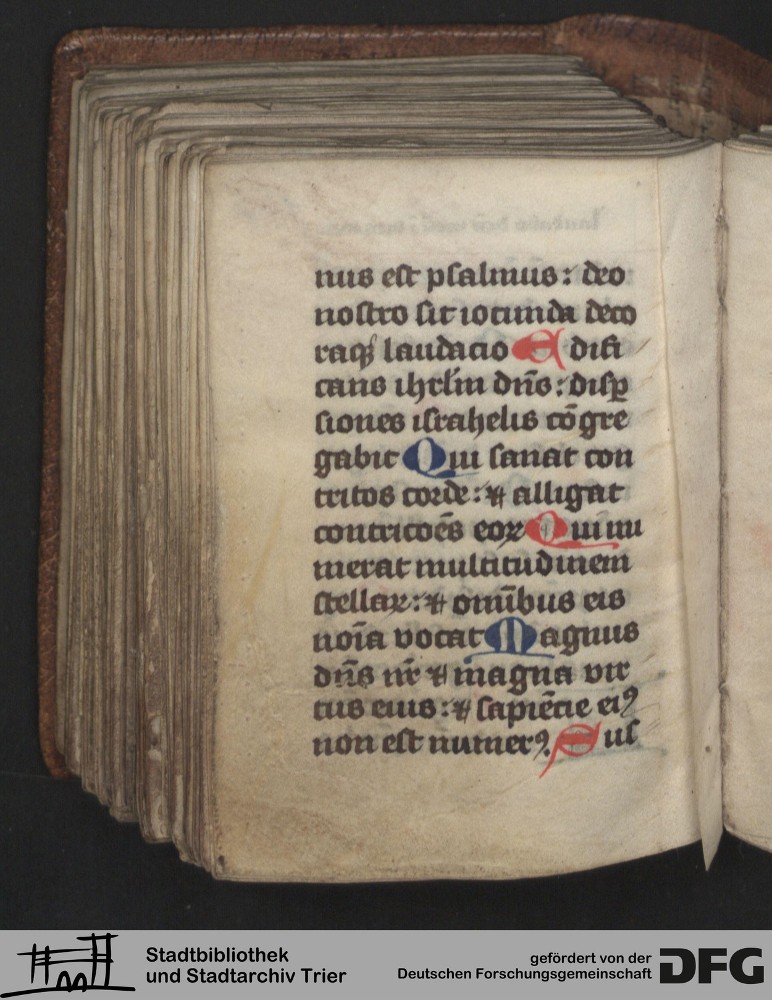 nus est psalmus : deo
nostro sit iocunda deco
raq; laudacio Edifi
cans ihrl̄m dn̄s : disꝑ
siones israhelis cōgre
gabit Qui sanat con
tritos corde : ⁊ alligat
contricōēs eoꝝ Qui nu
merat multitudinem
stellaꝝ : ⁊ omībus eis
noīa vocat Magnus
dn̄s nr̄ ⁊ magna vir
tus eius : ⁊ sapiēcie eiꝰ
non est numerꝰ. Sus
Stadtbibliothek
und Stadtarchiv Trier
gefördert von der
Deutschen Forschungsgemeinschaft
DFG